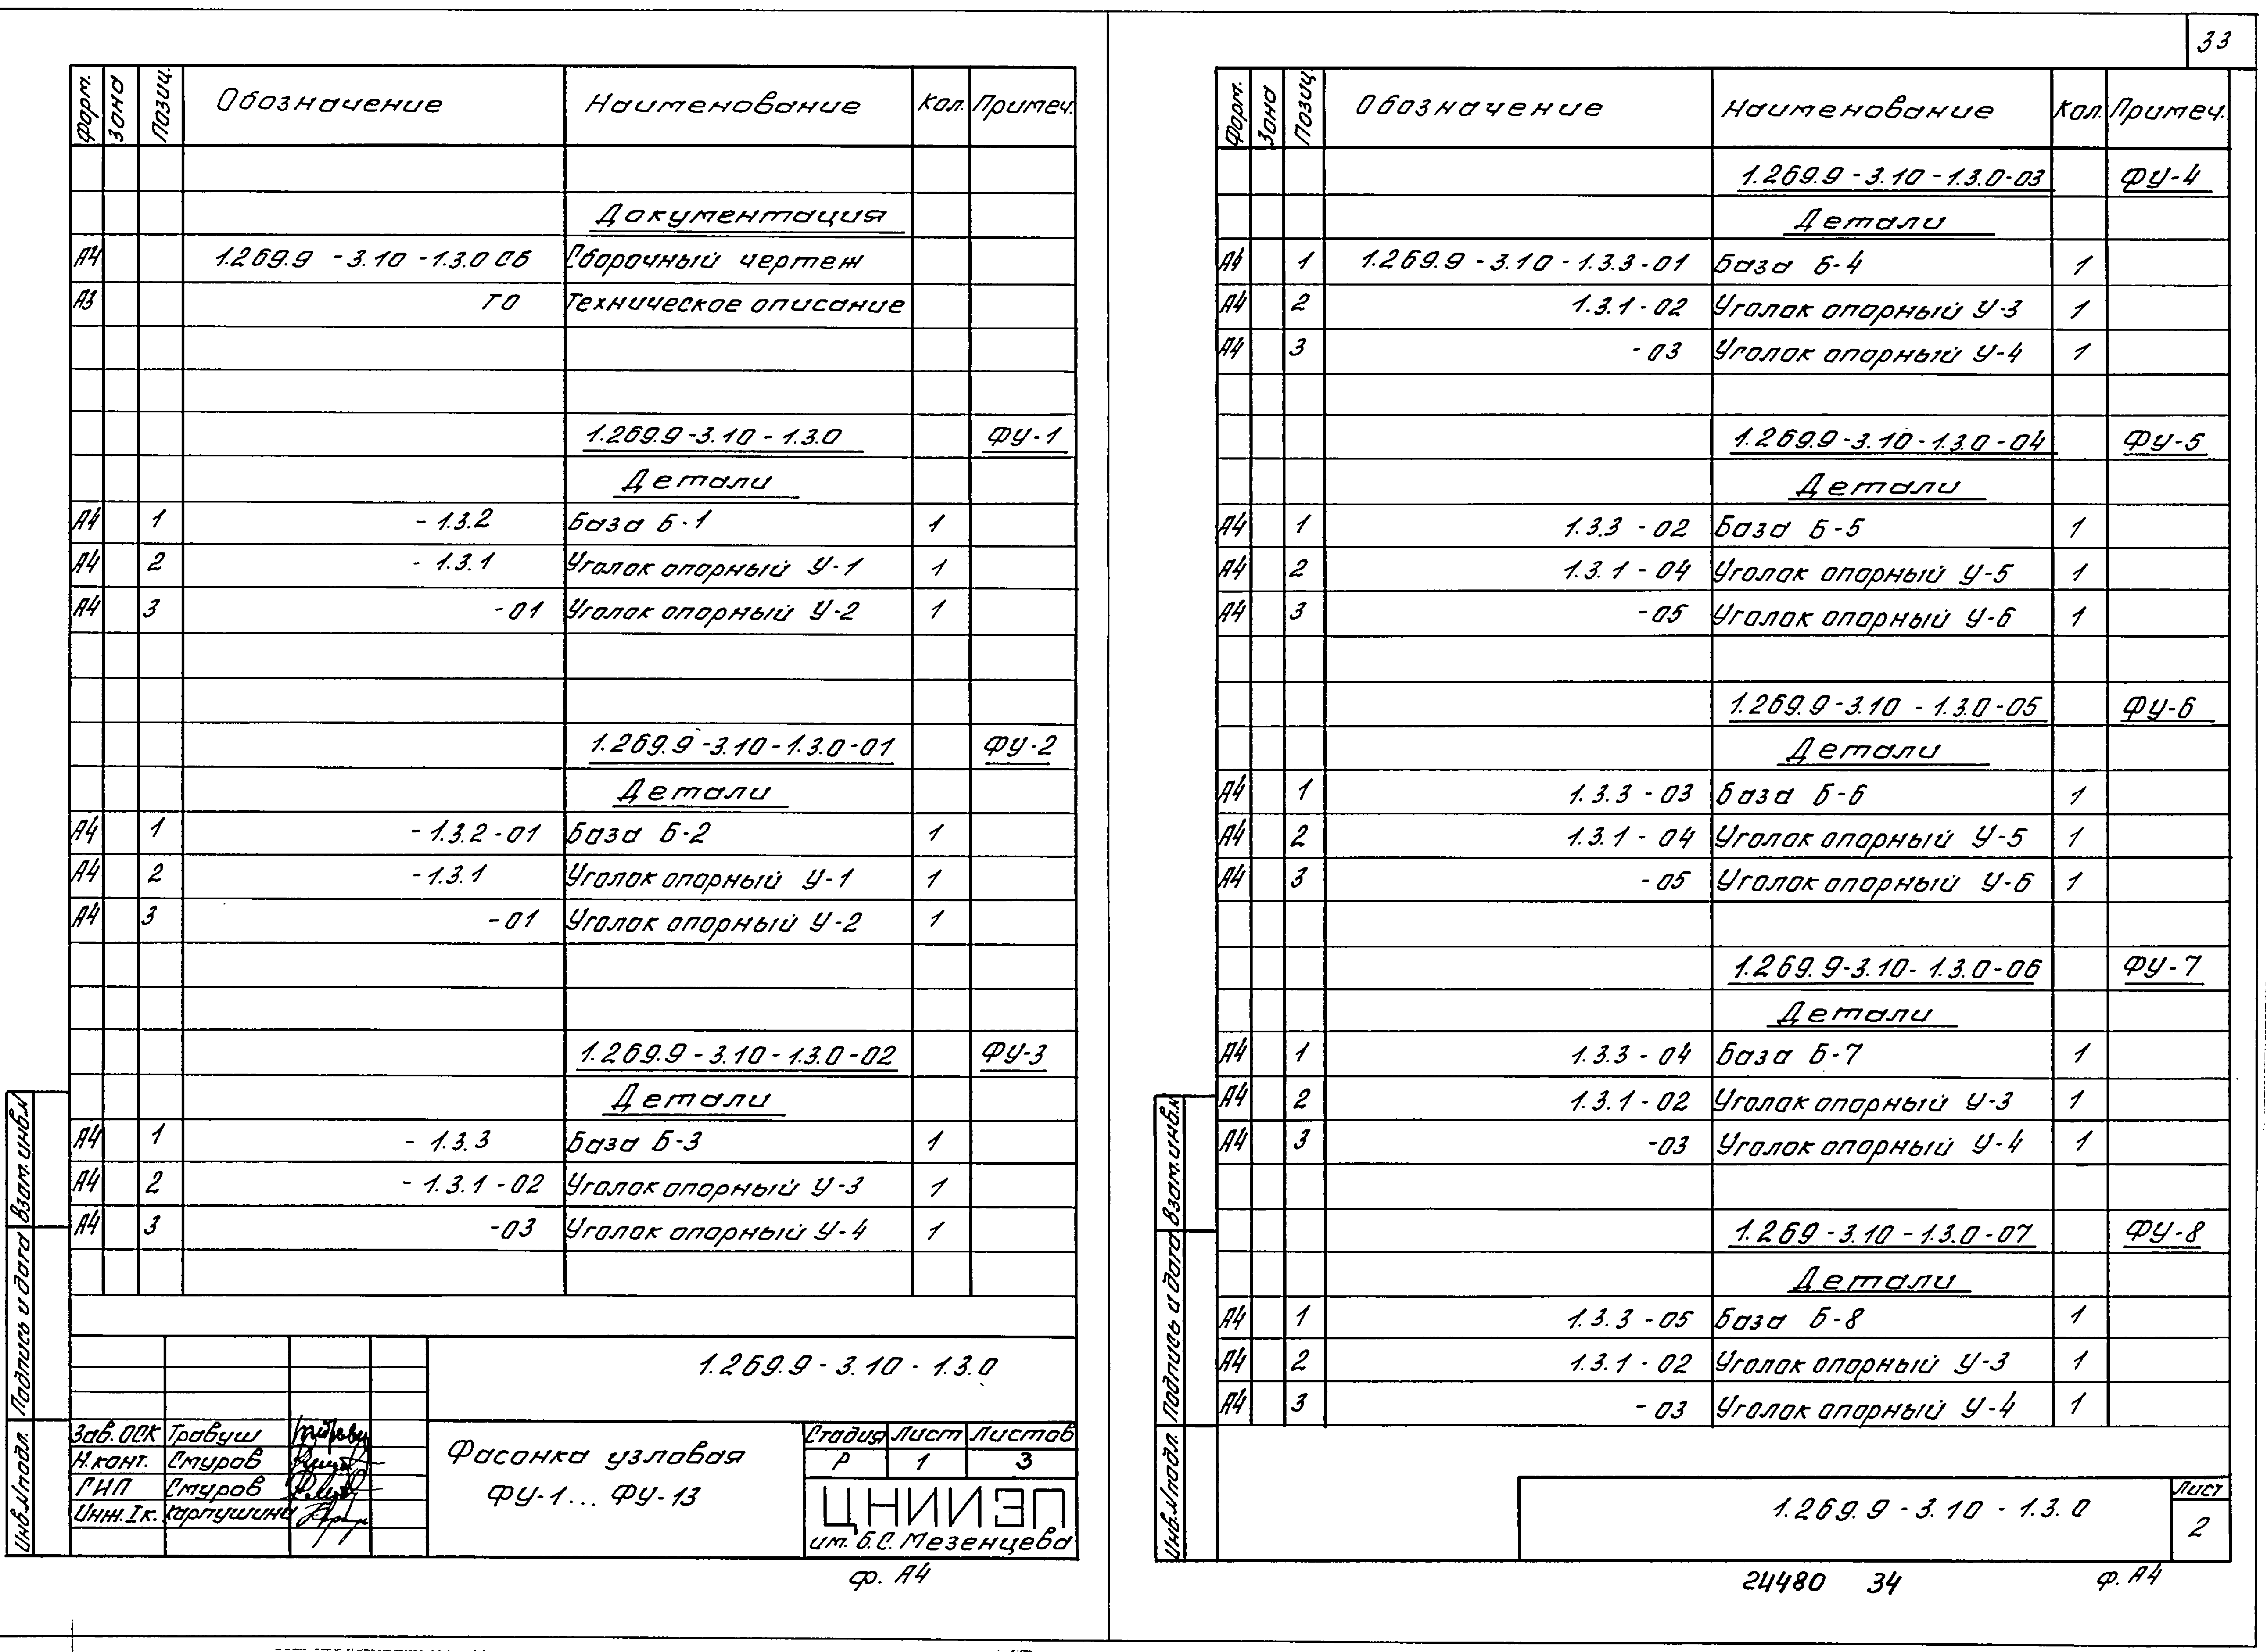 33
Форм. Зона Позиц. Обозначение Наименование Кол. Примеч.
Документация
А4 1.269.9 - 3.10 - 1.3.0 СБ Сборочный чертеж
А3 ТО Техническое описание
1.269.9-3.10-1.3.0 ФУ-1
Детали
А4 1 - 1.3.2 База Б-1 1
А4 2 - 1.3.1 Уголок опорный У-1 1
А4 3 -01 Уголок опорный У-2 1
1.269.9-3.10-1.3.0-01 ФУ-2
Детали
А4 1 - 1.3.2-01 База Б-2 1
А4 2 -1.3.1 Уголок опорный У-1 1
А4 3 -01 Уголок опорный У-2 1
1.269.9-3.10-1.3.0-02 ФУ-3
Детали
А4 1 - 1.3.3 База Б-3 1
А4 2 - 1.3.1-02 Уголок опорный У-3 1
А4 3 -03 Уголок опорный У-4 1
1.269.9-3.10-1.3.0
Зав. ОСК Травуш
Н.конт. Смуров
ГИП Смуров
Инж.Iк. Карпушина
Фасонка узловая
ФУ-1... ФУ-13
Стадия Лист Листов
Р 1 3
ЦНИИЭП
им. Б.С. Мезенцева
Инв.№подл. Подпись и дата Взам.инв.№
ф. А4
Форм. Зона Позиц. Обозначение Наименование Кол. Примеч.
1.269.9-3.10-1.3.0-03 ФУ-4
Детали
А4 1 1.269.9-3.10-1.3.3-01 База Б-4 1
А4 2 1.3.1-02 Уголок опорный У-3 1
А4 3 -03 Уголок опорный У-4 1
1.269.9-3.10-1.3.0-04 ФУ-5
Детали
А4 1 1.3.3-02 База Б-5 1
А4 2 1.3.1-04 Уголок опорный У-5 1
А4 3 -05 Уголок опорный У-6 1
1.269.9-3.10-1.3.0-05 ФУ-6
Детали
А4 1 1.3.3-03 База Б-6 1
А4 2 1.3.1-04 Уголок опорный У-5 1
А4 3 -05 Уголок опорный У-6 1
1.269.9-3.10-1.3.0-06 ФУ-7
Детали
А4 1 1.3.3-04 База Б-7 1
А4 2 1.3.1-02 Уголок опорный У-3 1
А4 3 -03 Уголок опорный У-4 1
1.269-3.10-1.3.0-07 ФУ-8
Детали
А4 1 1.3.3-05 База Б-8 1
А4 2 1.3.1-02 Уголок опорный У-3 1
А4 3 -03 Уголок опорный У-4 1
1.269.9-3.10-1.3.0
Лист
2
Инв.№подл. Подпись и дата Взам.инв.№
24480 34
ф. А4